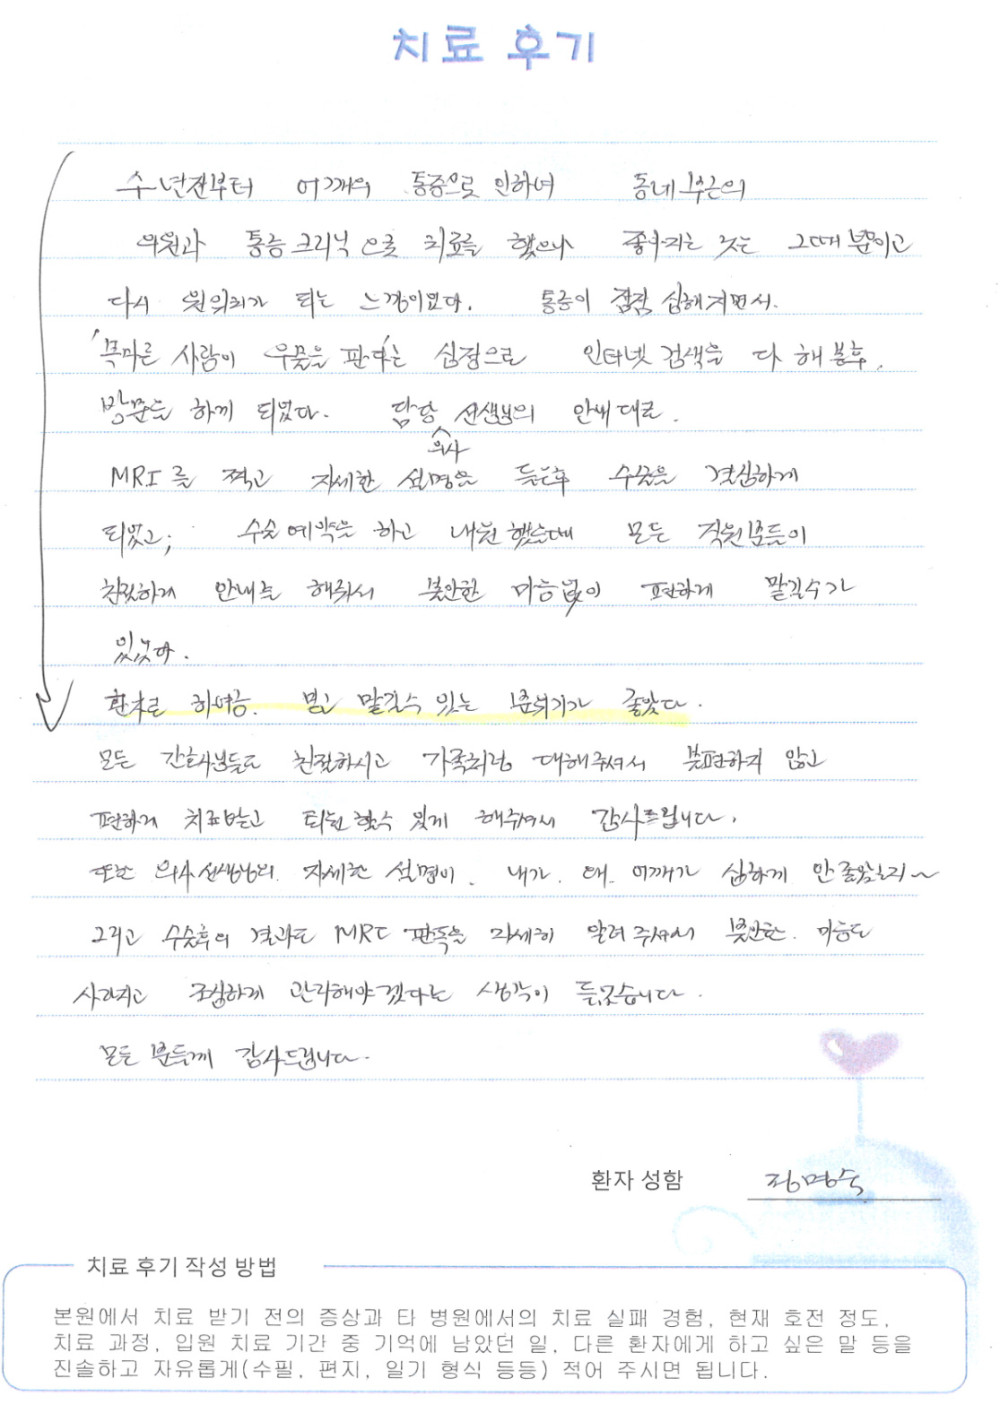 치료 후기
수년전부터 어깨의 통증으로 인하여 동네 부근의
의원과 통증크리닉으로 치료를 했으나 좋아지는 것은 그때뿐이고
다시 원위치가 되는 느낌이었다. 통증이 점점 심해지면서.
'목마른 사람이 우물을 판다'는 심정으로 인터넷 검색을 다 해본후.
방문을 하게 되었다. 담당 선생님의 안내대로.
의사
MRI를 찍고 자세한 설명을 듣는후 수술을 결심하게
되었고; 수술예약을 하고 내원했을때 모든 직원분들이
친절하게 안내를 해줘서 불안한 마음없이 편하게 맡길수가
있었다.
환자로 하여금. 믿고 맡길수 있는 분위기가 좋았다.
모든 간호사님들도 친절하시고 가족처럼 대해주셔서 불편하지 않고
편하게 치료받고 퇴원할수 있게 해주셔서 감사드립니다.
또한 의사선생님의 자세한 설명이. 내가. 왜. 어깨가 심하게 안좋았는지~
그리고 수술후의 결과도 MRI 판독을 자세히 알려주셔서 불안한. 마음도
사라지고 조심하게 관리해야겠다는 생각이 들었습니다.
모든 분들께 감사드립니다.
환자 성함 정명숙
치료 후기 작성 방법
본원에서 치료 받기 전의 증상과 타 병원에서의 치료 실패 경험, 현재 호전 정도,
치료 과정, 입원 치료 기간 중 기억에 남았던 일, 다른 환자에게 하고 싶은 말 등을
진솔하고 자유롭게(수필, 편지, 일기 형식 등등) 적어 주시면 됩니다.